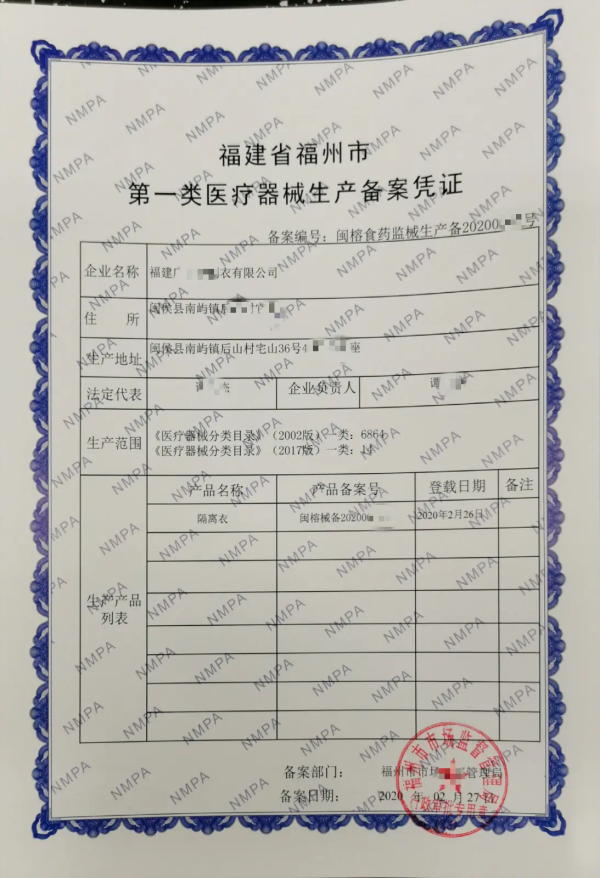 福建省福州市
第一类医疗器械生产备案凭证
备案编号：闽榕食药监械生产备20200 号
企业名称 福建 衣有限公司
住 所 闽侯县南屿镇
生产地址 闽侯县南屿镇后山村宅山36号4 座
法定代表 企业负责人 谭
生产范围 《医疗器械分类目录》（2002版）一类：6864
《医疗器械分类目录》（2017版）一类：14
生产产品列表
产品名称 产品备案号 登载日期 备注
隔离衣 闽榕械备20200 2020年2月26日
备案部门： 福州市市场 管理局
备案日期： 2020 年 02 月 27 日
福州市市场监督管理局
行政审批专用章
NMPA